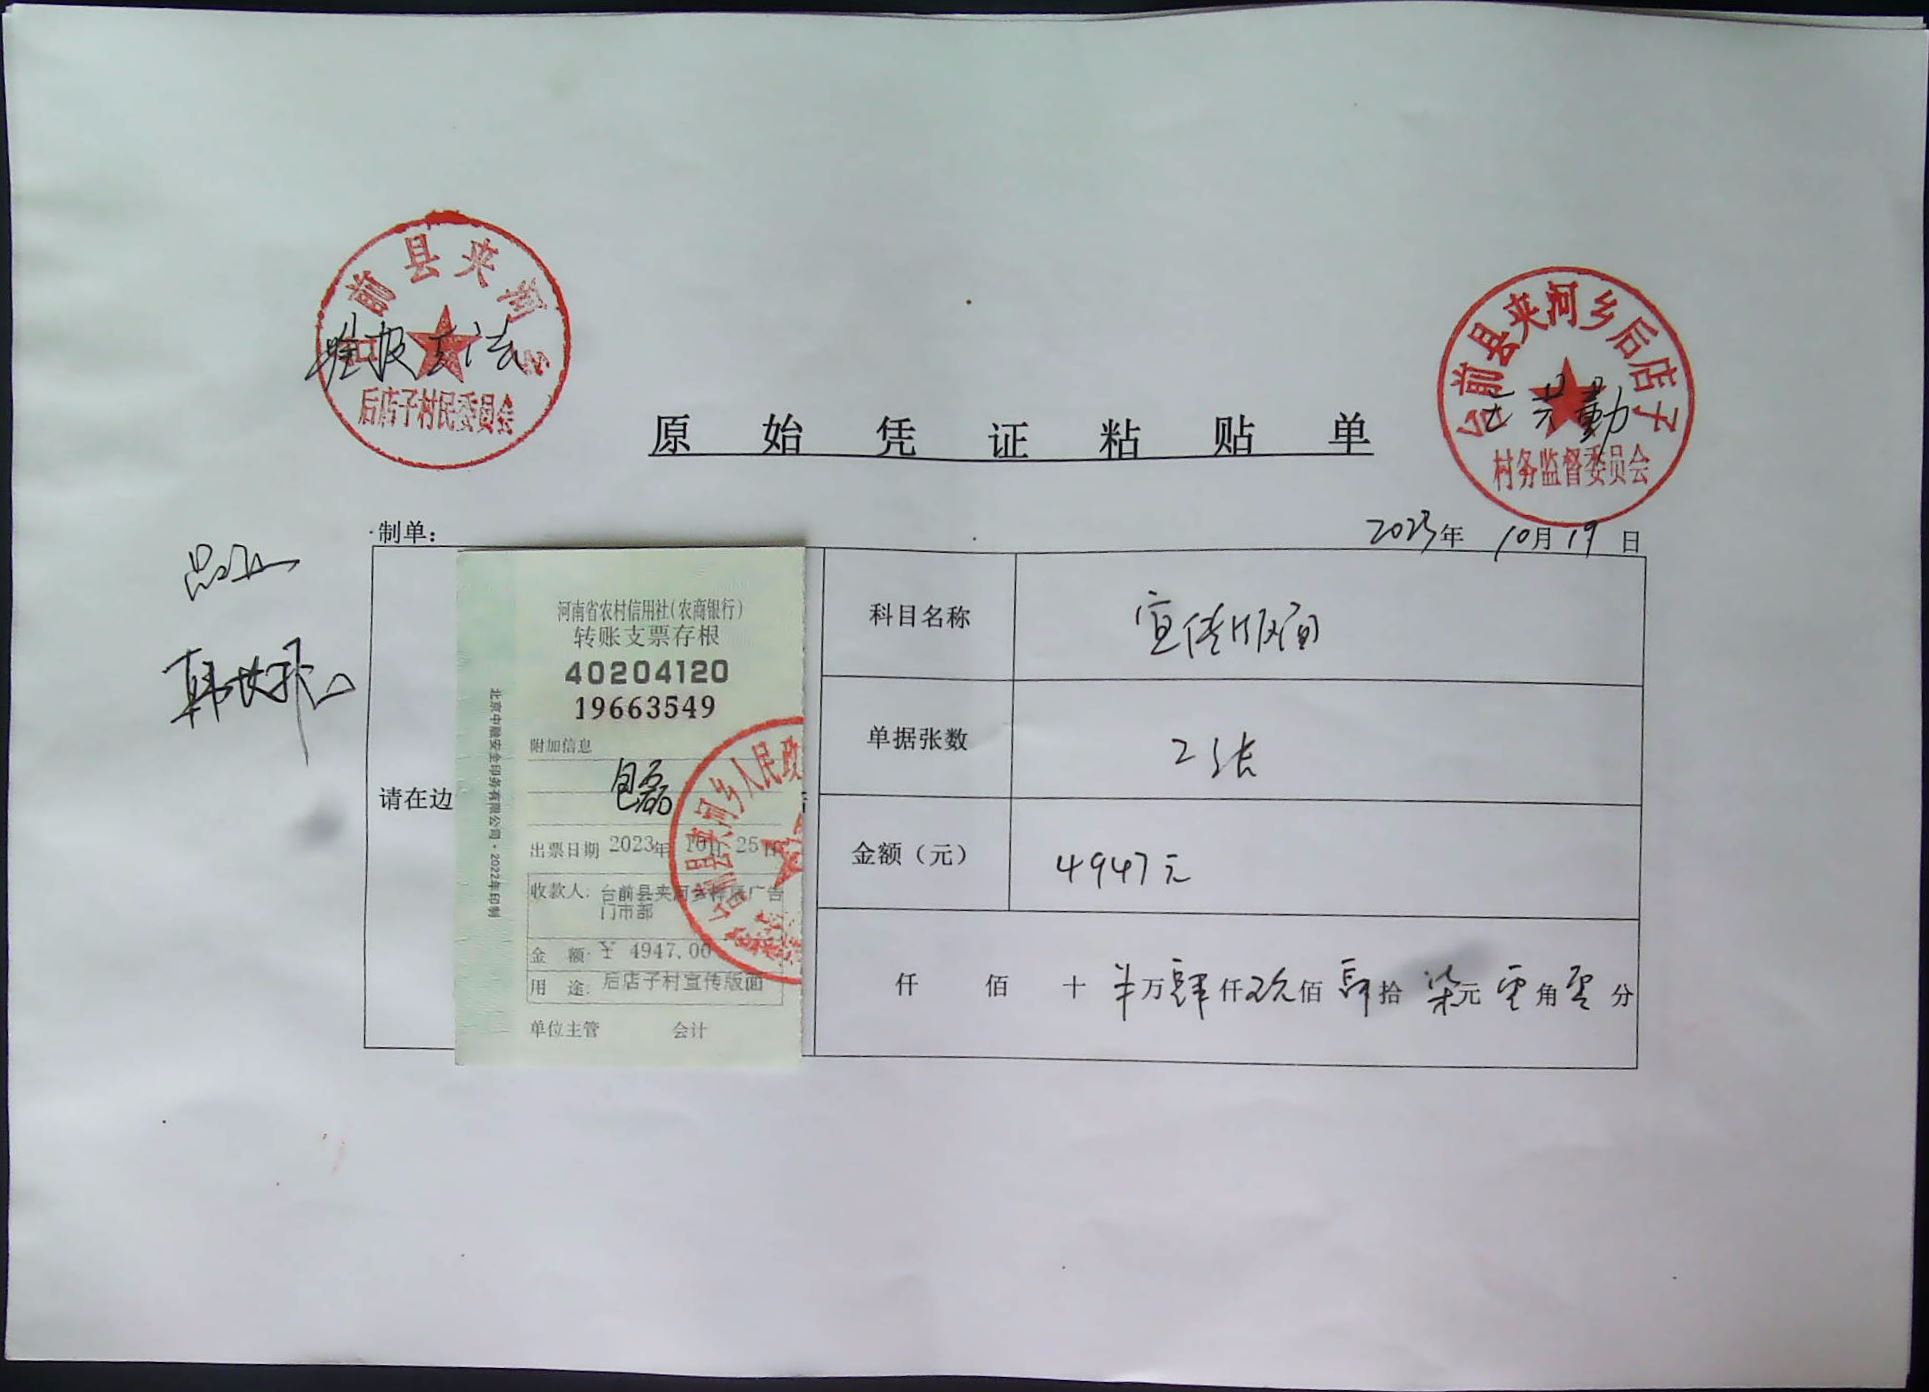 前县夹河
后店子村民委员会
台前县夹河乡后店子
村务监督委员会
原始凭证粘贴单
制单：
2023年 10月19日
同意
请在边
河南省农村信用社（农商银行）
转账支票存根
40204120
19663549
附加信息
包磊
出票日期 2023年10月25日
收款人：台前县夹河乡
广告
门市部
金额：¥ 4947.00
用途：后店子村宣传版面
单位主管 会计
北京中融安全印务有限公司·2022年印制
台前县夹河乡人民政
科目名称 宣传版面
单据张数 2张
金额（元） 4947元
仟 佰 十 万肆仟玖佰肆拾柒元零角零分